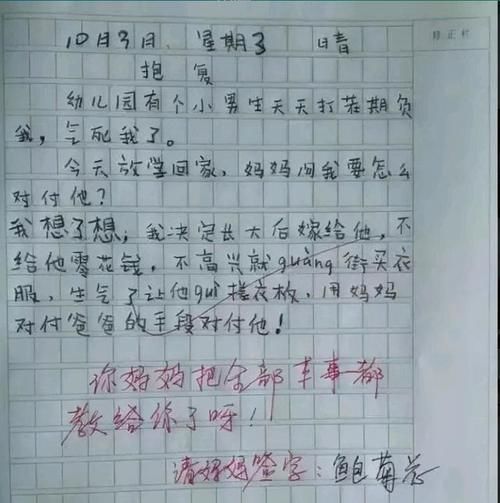 10月3日 星期3 晴
修正栏
抱复
幼儿园有个小男生天天打茬期负
我，气死我了。
今天放学回家，妈妈问我要怎么
对付他？
我想了想，我决定长大后嫁给他，不
给他零花钱，不高兴就guàng街买衣
服，生气了让他guì搓衣板，用妈妈
对付爸爸的手段对付他！
你妈妈把全部本事都
教给你了呀！
请妈妈签字：鲍菊芯